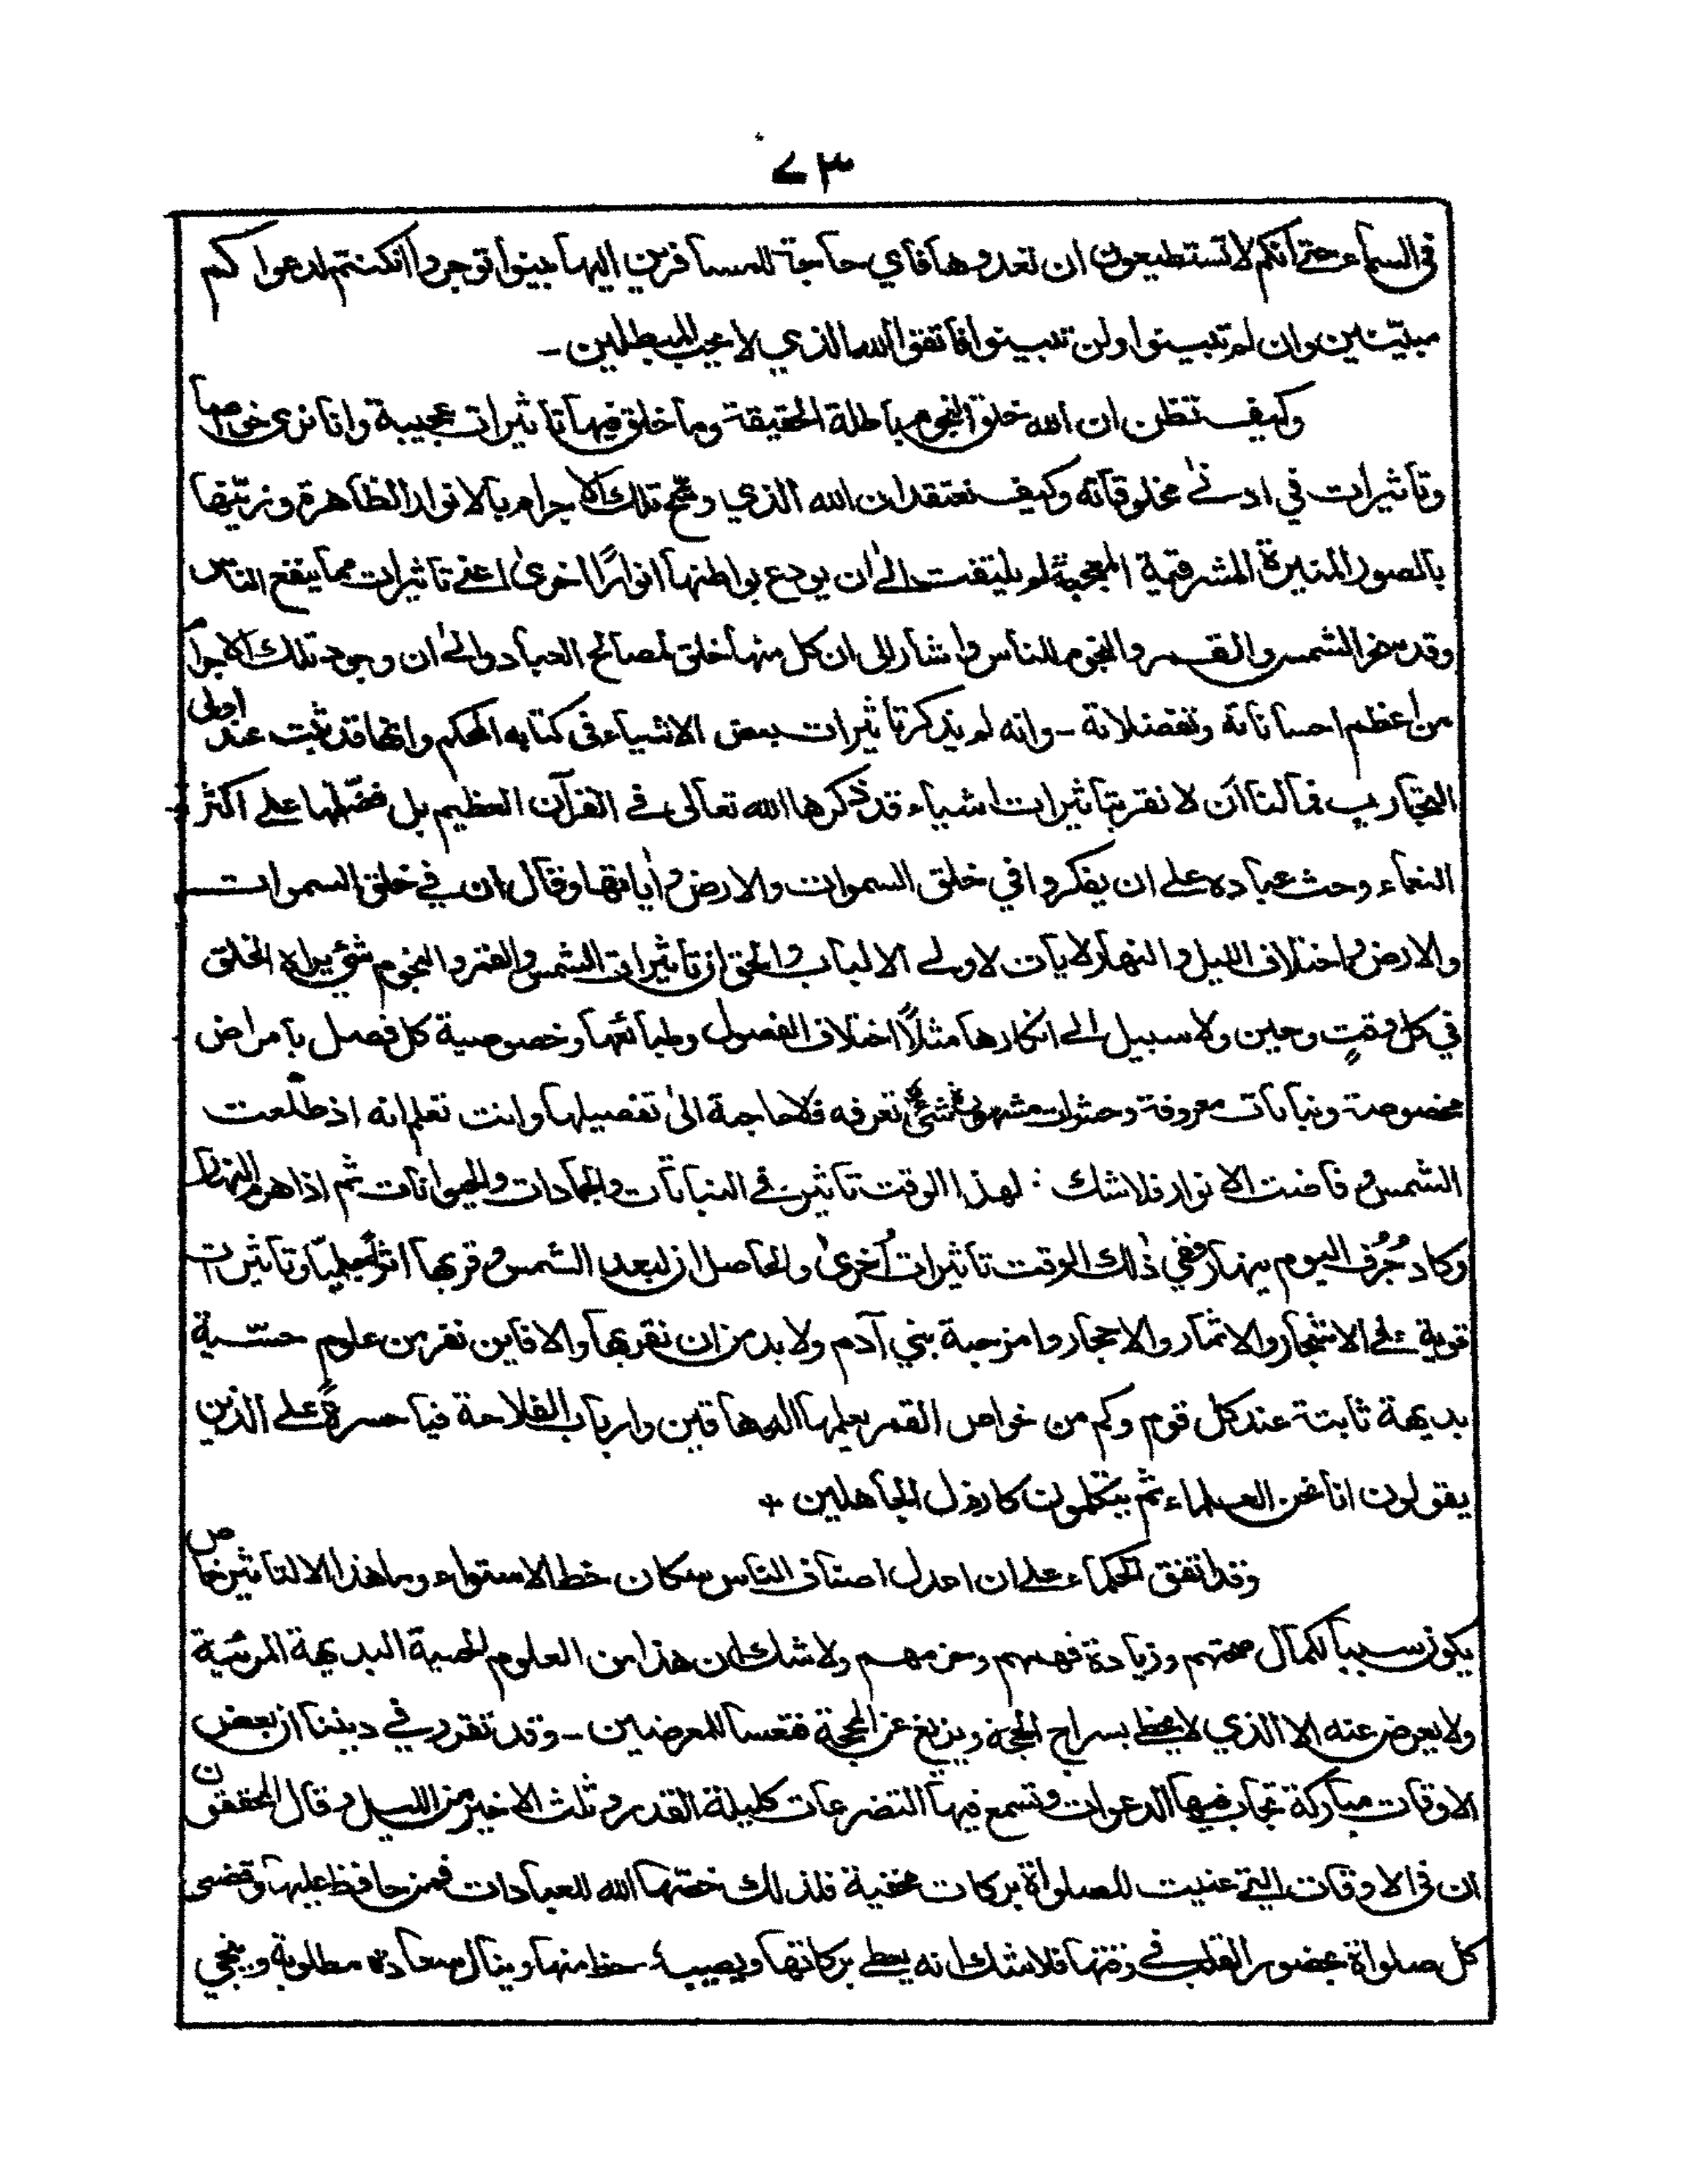 ٧٣
في السماء حتى انكم لا تستطيعون ان تعدوها فأي حاجة للمسافرين اليها بينوا توجروا ان كنتم لدعواكم
مبيّنين وان لم تبينوا ولن تبينوا فاتقوا الله الذي لا يحب المبطلين ـ
وكيف تظن ان الله خلق النجوم باطلة الحقيقة وما خلق فيها تأثيرات عجيبة وانا نرى خواصها
وتأثيرات في ادنىٰ مخلوقاته وكيف نعتقد ان الله الذي تلك الاجرام بالانوار الظاهرة وزيّنها
بالصور المنيرة المشرقية المعجبة لم يلتفت الىٰ ان يودع بواطنها انوارًا اخرىٰ اعني تاثيرات مما ينفع الناس
وقد سخر الشمس والقمر والنجوم للناس واشار الى ان كل منها خلق لمصالح العباد والىٰ ان وجود تلك الاجرام
من اعظم احساناته وتفضلاته ـ وانه لم يذكر تأثيرات بعض الاشياء في كتابه المحكم وانها قد ثبت عند اولى
التجاريب فما لنا ان لا نقر بتأثيرات اشياء قد ذكرها الله تعالى في القرآن العظيم بل فضّلها على اكثر
النعماء وحث عباده على ان يفكروا في خلق السموات والارض واٰياتها وقال ان في خلق السموات
والارض واختلاف الليل والنهار لايات لاولي الالباب والحق ان تأثيرات الشمس والقمر والنجوم شئ يراه الخلق
في كل وقتٍ وحين ولا سبيل الى انكارها مثلًا اختلاف الفصول وطبائعها وخصوصية كل فصل بأمراض
مخصوصة ونباتات معروفة وحشرات مشهورة شئ تعرفه فلا حاجة الىٰ تفصيلها وانت تعلم انه اذ طلعت
الشمس وفاضت الانوار فلا شك ان لهذا الوقت تأثير في النباتات والجمادات والحيوانات ثم اذا هرم النهار
وكاد جُرُف اليوم ينهار ففي ذٰلك الوقت تأثيرات اُخرىٰ والحاصل ان لبعد الشمس وقربها اثراً جليّا وتأثيرات
قوية على الاشجار والاثمار والاحجار وامزجة بني آدم ولا بد من ان نقر بها والا فاين نفر من علوم حسّية
بديهة ثابتة عند كل قوم وكم من خواص القمر يعلمها الدهاقين وارباب الفلاحة فيا حسرةً على الذين
يقولون انا نحن العلماء ثم يتكلمون كارذل الجاهلين +
وقد اتفق الحكماء على ان اعدل اصناف الناس سكان خط الاستواء وما هذا الا لتأثير خاص
يكون سببا لكمال صحتهم وزيادة فهمهم وحزمهم ولا شك ان هذا من العلوم الحسية البديهة المرئية
ولا يعرض عنه الا الذي لا يحظى بسراج الحجة ويزيغ عن المحجة فتعسا للمعرضين ـ وقد تقرر في ديننا ان بعض
الاوقات مباركة تجاب فيها الدعوات وتسمع فيها التضرعات كليلة القدر وثلث الاخير من الليل وقال المحققون
ان في الاوقات التي عنيت للصلواة بركات مخفية فلذلك خصّها الله للعبادات فمن حافظ عليها وقضى
كل صلواة بحضور القلب في وقتها فلا شك انه يعطى بركاتها ويصيبه حظ منها وينال سعادة مطلوبة وينجي